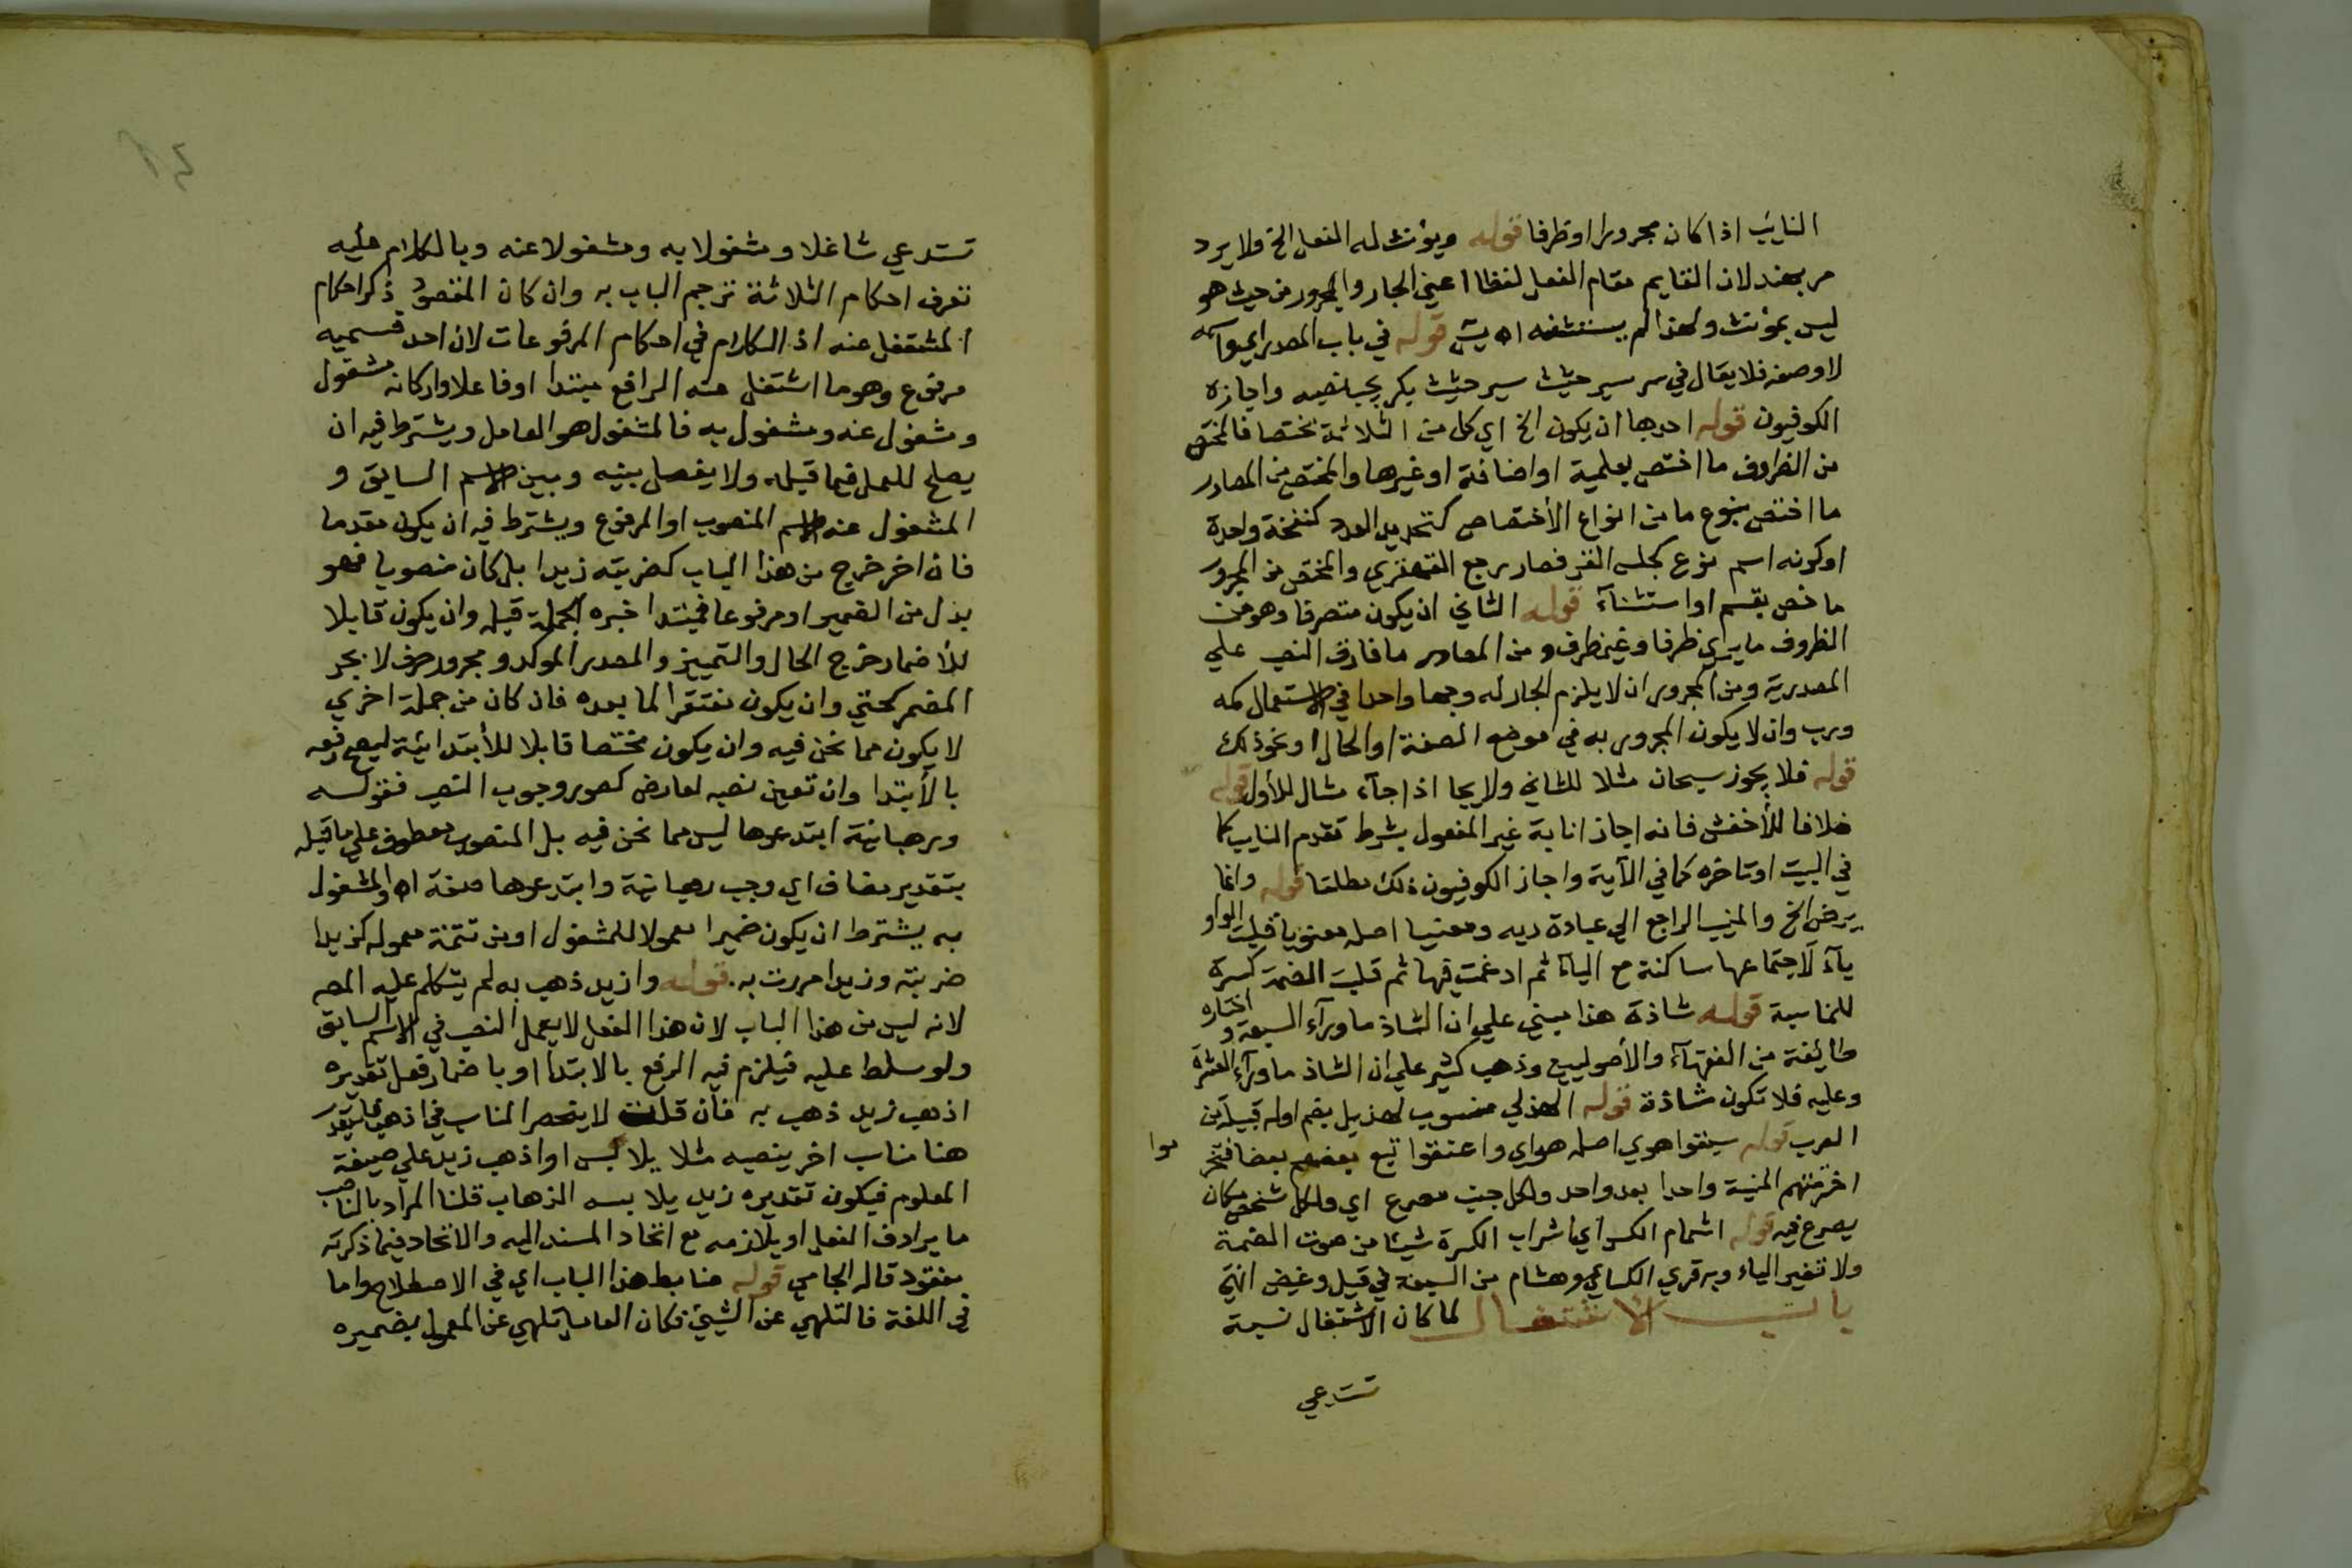 النايب اذا كان مجرورا او ظرفا قوله ويؤنث له الفعل الخ ولا يرد
مر بهند لان القايم مقام الفعل لفظا اعني الجار والمجرور من حيث هو
ليس بمؤنث ولهذا لم يستثنه اه يس قوله في باب المصدر اي
لا وصفه فلا يقال في سير سير حثيث سير حثيث بكر يجب نصبه واجازه
الكوفيون قوله احدها ان يكون الخ اي كل من الثلاثة مختصا فالمختص
من الظروف ما اختص بعلمية او اضافة او غيرها والمختص من المصادر
ما اختص بنوع ما من انواع الأختصاص كتحديد العدد كنفخة واحدة
او كونه اسم نوع كجلس القرفصا ورجع القهقري والمختص من المجرور
ما خص بقسم او استثنآء قوله الثاني ان يكون متصرفا وهو من
الظروف ما يري ظرفا وغير ظرف ومن المصادر ما فارق النصب علي
المصدرية ومن المجرور ان لا يلزم الجار له وجها واحدا في الاستعمال كمه
ورب وان لا يكون المجرور به في موضع الصفة او الحال او نحو ذلك
قوله فلا يجوز سبحان مثلا للثاني ولا يجا اذا جآء مثال للأول قوله
خلافا للأخفش فانه اجاز انابة غير المفعول بشرط تقدم النايب كما
في البيت او تاخره كما في الآية واجاز الكوفيون ذلك مطلقا قوله وانما
يرضي الخ والمنيب الراجع الي عبادة ربه ومعنيا اصله معنويا قلبت الواو
يآء لاجتماعها ساكنة مع اليآء ثم ادغمت فيها ثم قلبت الضمة كسرة
للمناسبة قوله شاذة هذا مبني علي ان الشاذ ما ورآء السبعة واختاره
طائفة من الفقهآء والأصوليين وذهب كثير علي ان الشاذ ما ورآء العشرة
وعليه فلا تكون شاذة قوله الهذلي منسوب لهذيل بضم اوله قبيلة من
العرب قوله سبقوا هوي اصله هواي واعنقوا تبع بعضهم بعضا فتخر
موا
اخترمتهم المنية واحدا بعد واحد ولكل جنب مصرع اي ولكل شخص مكان
يصرع فيه قوله اشمام الكسر اي اشراب الكسرة شيئا من صوت الضمة
ولا تغير الياء وبه قري الكسائي وهشام من السبعة في قيل وغيض انتهي
باب الاشتغال لما كان الاشتغال نسبة
تستدعي
تستدعي شاغلا ومشغولا به ومشغولا عنه وبالكلام عليه
تعرف احكام الثلاثة ترجم الباب به وان كان المقصود ذكر احكام
المشتغل عنه اذ الكلام في احكام المرفوعات لان احد قسميه
مرفوع وهو ما اشتغل عنه الرافع مبتدا او فاعلا واركانه مشغول
ومشغول عنه ومشغول به فالمشغول هو العامل ويشترط فيه ان
يصلح للعمل فيما قبله ولا يفصل بينه وبين الاسم السابق و
المشغول عنه الاسم المنصوب او المرفوع ويشترط فيه ان يكون مقدما
فان اخر خرج من هذا الباب كضربته زيدا بل كان منصوبا فهو
بدل من الضمير او مرفوعا فمبتدا خبره الجملة قبله وان يكون قابلا
للأضمار فخرج الحال والتمييز والمصدر الموكد ومجرور حرف لا يجر
المضمر كحتي وان يكون مفتقرا لما بعده فان كان من جملة اخري
لا يكون مما نحن فيه وان يكون مختصا قابلا للأبتدائية ليصح رفعه
بالأبتدا وان تعين نصبه لعارض كصور وجوب النصب فقوله
ورهبانية ابتدعوها ليس مما نحن فيه بل المنصوب معطوف علي ما قبله
بتقدير مضاف اي وحب رهبانية وابتدعوها صفة اه والمشغول
به يشترط ان يكون ضميرا معمولا للمشغول او من تتمة معموله كزيدا
ضربته وزيدا مررت به. قوله وازيد ذهب به لم يتكلم عليه المصـ
لانه ليس من هذا الباب لان هذا الفعل لا يعمل النصب في الاسم السابق
ولو سلط عليه فيلزم فيه الرفع بالابتدا او باضمار فعل تقديره
اذهب زيد ذهب به فان قلت لا ينحصر المناسب في اذهب فليقدر
هنا مناسب اخر ينصبه مثلا يلابس او اذهب زيد علي صيغة
المعلوم فيكون تقديره زيد يلابسه الذهاب قلنا المراد بالناصب
ما يرادف الفعل او يلازمه مع اتحاد المسند اليه والاتحاد فيما ذكرته
مفقود قاله الجامي قوله ضابط هذا الباب اي في الاصطلاح واما
في اللغة فالتلهي عن الشيئ فكان العامل تلهي عن المعمول بضميره